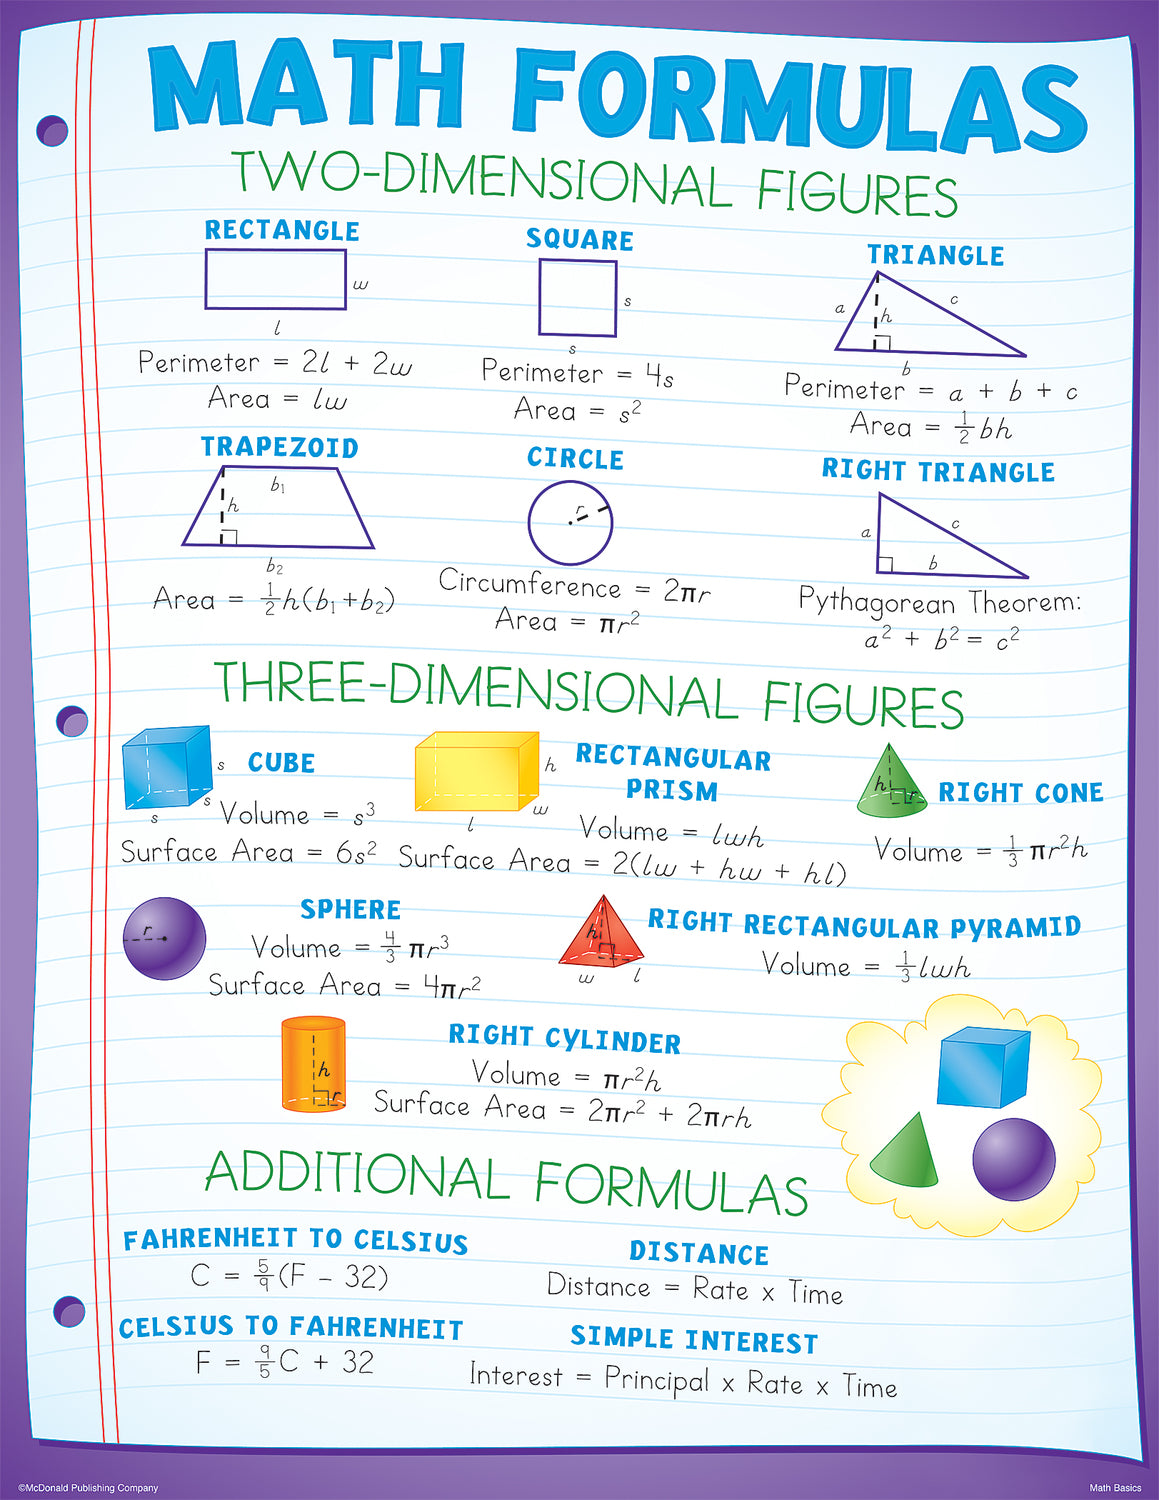 MATH FORMULAS
TWO-DIMENSIONAL FIGURES
RECTANGLE
w
l
Perimeter = 2l + 2w
Area = lw
SQUARE
s
s
Perimeter = 4s
Area = s²
TRIANGLE
a
c
h
b
Perimeter = a + b + c
Area = ½bh
TRAPEZOID
b₁
h
b₂
Area = ½h(b₁+b₂)
CIRCLE
r
Circumference = 2πr
Area = πr²
RIGHT TRIANGLE
a
c
b
Pythagorean Theorem:
a² + b² = c²
THREE-DIMENSIONAL FIGURES
CUBE
s
s
s
Volume = s³
Surface Area = 6s²
RECTANGULAR
PRISM
h
w
l
Volume = lwh
Surface Area = 2(lw + hw + hl)
RIGHT CONE
h
r
Volume = ⅓πr²h
SPHERE
r
Volume = 4/3 πr³
Surface Area = 4πr²
RIGHT RECTANGULAR PYRAMID
h
w
l
Volume = ⅓lwh
RIGHT CYLINDER
h
r
Volume = πr²h
Surface Area = 2πr² + 2πrh
ADDITIONAL FORMULAS
FAHRENHEIT TO CELSIUS
C = 5/9(F - 32)
DISTANCE
Distance = Rate x Time
CELSIUS TO FAHRENHEIT
F = 9/5C + 32
SIMPLE INTEREST
Interest = Principal x Rate x Time
©McDonald Publishing Company
Math Basics